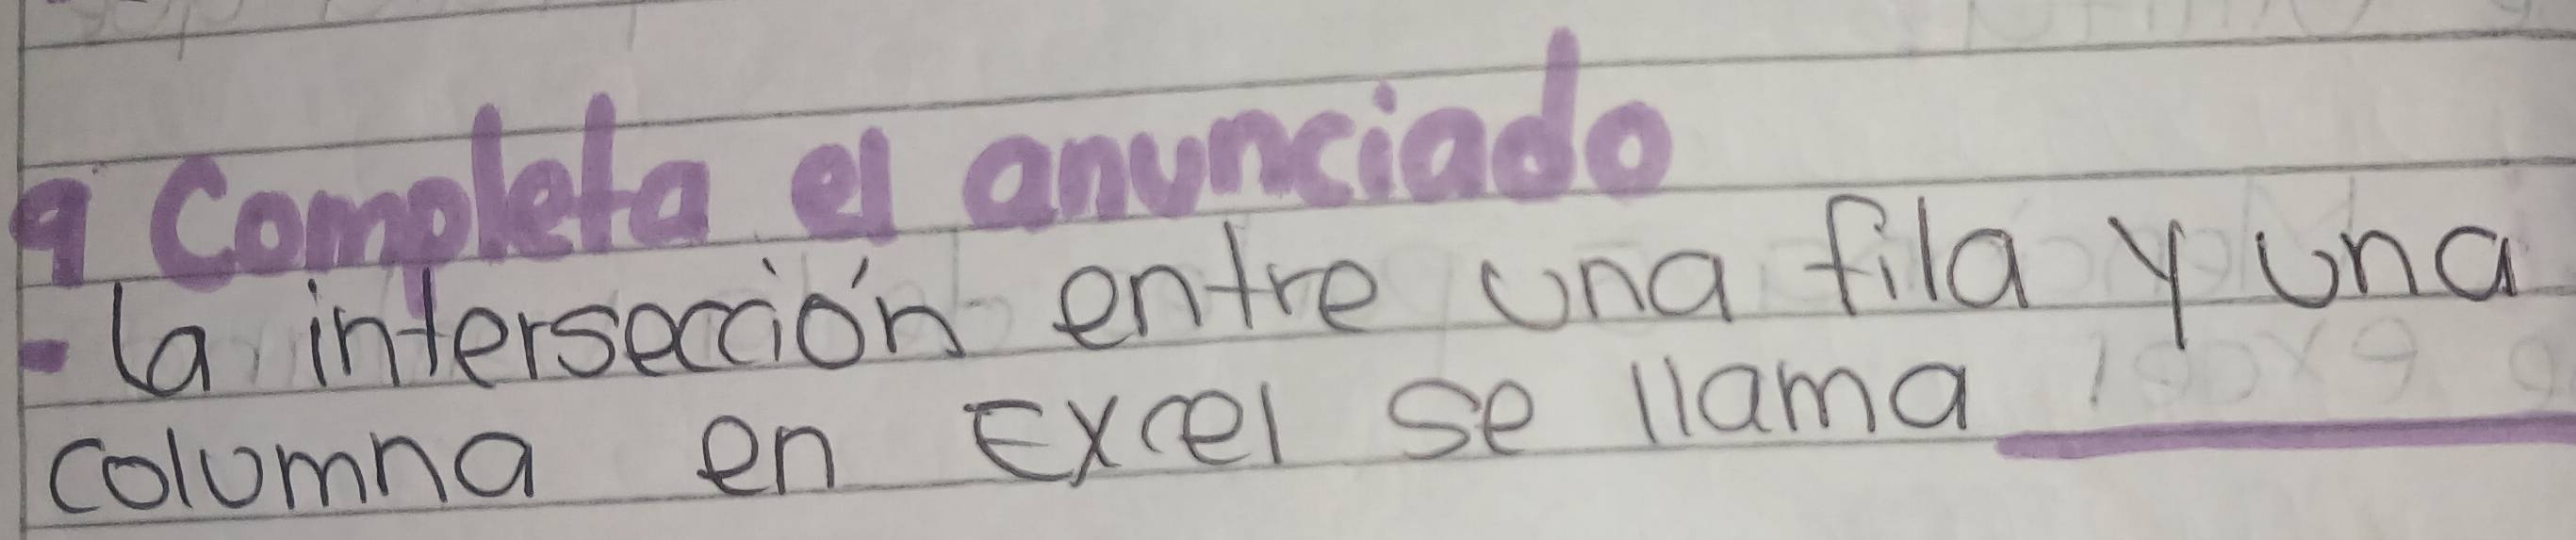 9 Completa el anunciado
- la intersección entre una fila y una
columna en Excel se llama